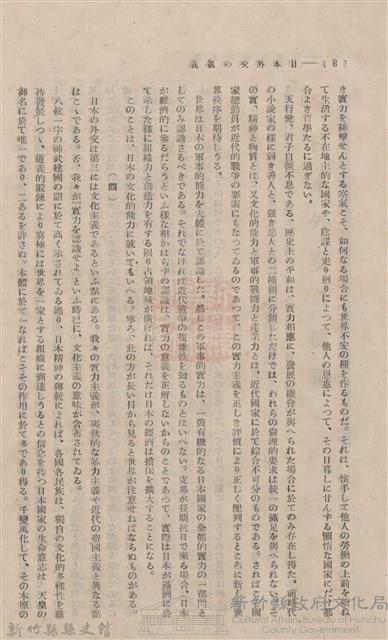 (8)——日本外交の眞義
き實力を排撃せんとする宗氣こそ、如何なる場合にも世界不安の種を作るものだ。それは、懷手して他人の勞働の上前を
て生活する不在地主的な國家や、陰謀と走り廻りによつて、他人の恩惠によつて、その日暮しに甘んずる懶惰な國家にだけ都
合よき哲學たるに過ぎない。
天行健、君子自彊不息である、歴史上の平和は、實力相應に、發展の機會が與へられた場合に於てのみ存在し得た。前代
の小説家の樣に弱き善人と、强き惡人との二種類に分類しただけでは、われらの倫理的要求は統一の滿足を與へられない。
の實、精神と物質とは、又文化的能力と軍事的戰鬪力と産業力とは、近代國家に於て綜合不可分のものである。されば
家總動員が近代的戰爭の要素にもなつてゐるのであつて、この實力主義を正しき評價により正しく配列するところに新しい
界秩序を期待しうる。
世界は日本の軍事的能力を大體に於て認識した。然しこの軍事的實力は、一箇有機的なる日本國家の全體的實力の一部門と
してのみ認識さるべきである。それでなければ近代戰爭の複雜性を知るものとはいへない。支那が長期抗日で來る場合、日本
が經濟的に參るだらうといふ樣な見かけの認識は、實力の意義を正解しないからのことであつて、實際は日本が滿洲に於
て示した樣に組織力と創造力を有する限り占領地域が廣ければ、それだけ日本の經濟は擔保を擴大することになる。
このことは、日本の文化的能力に就てもいへる。寧ろ、此の方が長い目から見ると世界が注意せねばならぬものがある。
(四)
日本の外交は第三には文化主義であるといふ點にある。我々の實力主義が、夷狄的な暴力主義や近代的帝國主義と異なる點
はこゝである。否、我々が「實力を認識せよ」といふ時には、文化主義の意味が含蓄されてゐる。
八紘一宇の神武建國の詔に於て高く示されてゐる通り、日本精神の傳統によれば、各國各民族は、獨自の文化的多樣性を維
持發展しつゝ、道德的鍛錬により窮極には世界を一家とする組織に到達しうるとの信念を持つ日本國家の生命意志は、天皇の
御名に於て唯一であり、二あるを許さぬ。本體に於て一なればこそその作用に於て多であり得る。千變萬化して、その本原の
新竹縣縣史館
新竹縣政府文化局
Cultural Affairs Bureau of Hsinchu County Government